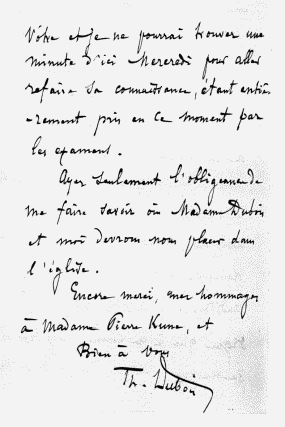 Vôtre et je ne pourrai trouver une
minute d'ici Mercredi pour aller
refaire sa connaissance, étant entiè-
-rement pris en ce moment par
les examens.
Ayez seulement l'obligeance de
me faire savoir où Madame Dubois
et moi devrons nous placer dans
l'église.
Encore merci, mes hommages
à Madame Pierre Kune, et
Bien à vous
Th. Dubois